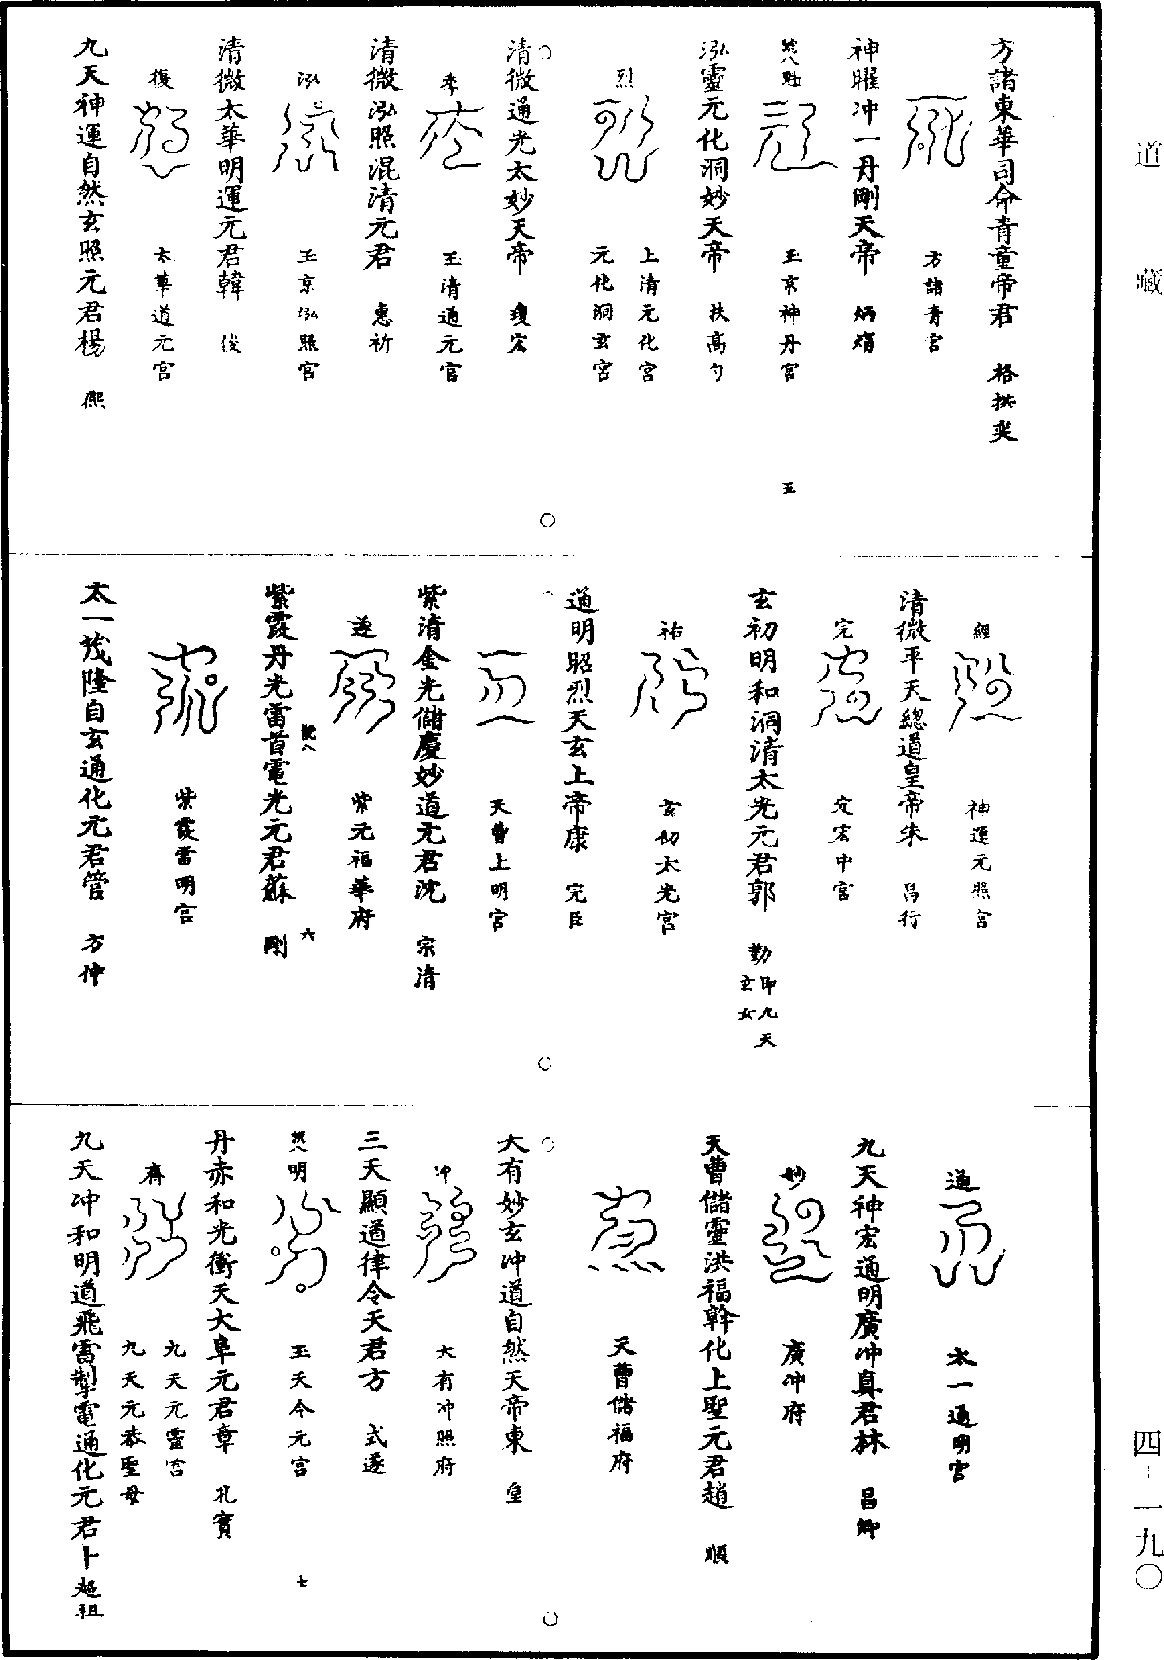 道藏
四-一九〇
方諸東華司命青童帝君 格拱奕
方諸青宮
神曜冲一丹剛天帝 炳熠
魁
玉京神丹宮
五
泓靈元化洞妙天帝 扶高勺
烈
上清元化宮
元化洞玄宮
清微通光太妙天帝 瓊宏
玉清通元宮
清微泓照混清元君 惠祈
泓
玉京泓照宮
清微太華明運元君韓 俊
復
太華道元宮
九天神運自然玄照元君楊 熙
經
神運元照宮
清微平天總道皇帝朱 昌行
完
宏中宮
玄初明和洞清太光元君郭 勤 即九天玄女
祐
玄初太光宮
道明昭烈天玄上帝康 完臣
天曹上明宮
紫清金光儲慶妙道元君沈 宗清
遂
紫元福華府
六
紫霞丹光雷首電光元君蘇 剛
紫霞雷明宮
太一茂隆自玄通化元君管 方仲
通
太一通明宮
九天神宏通明廣冲真君林 昌卿
妙
廣冲府
天曹儲靈洪福幹化上聖元君趙 順
天曹儲福府
大有妙玄冲道自然天帝東 皇
冲
大有冲照府
三天顯通律令天君方 式遂
明
玉天令元宮
七
丹赤和光衝天大阜元君章 孔賓
九天元靈宮
九天元恭聖母
九天冲和明道飛雷掣電通化元君卜 超祖